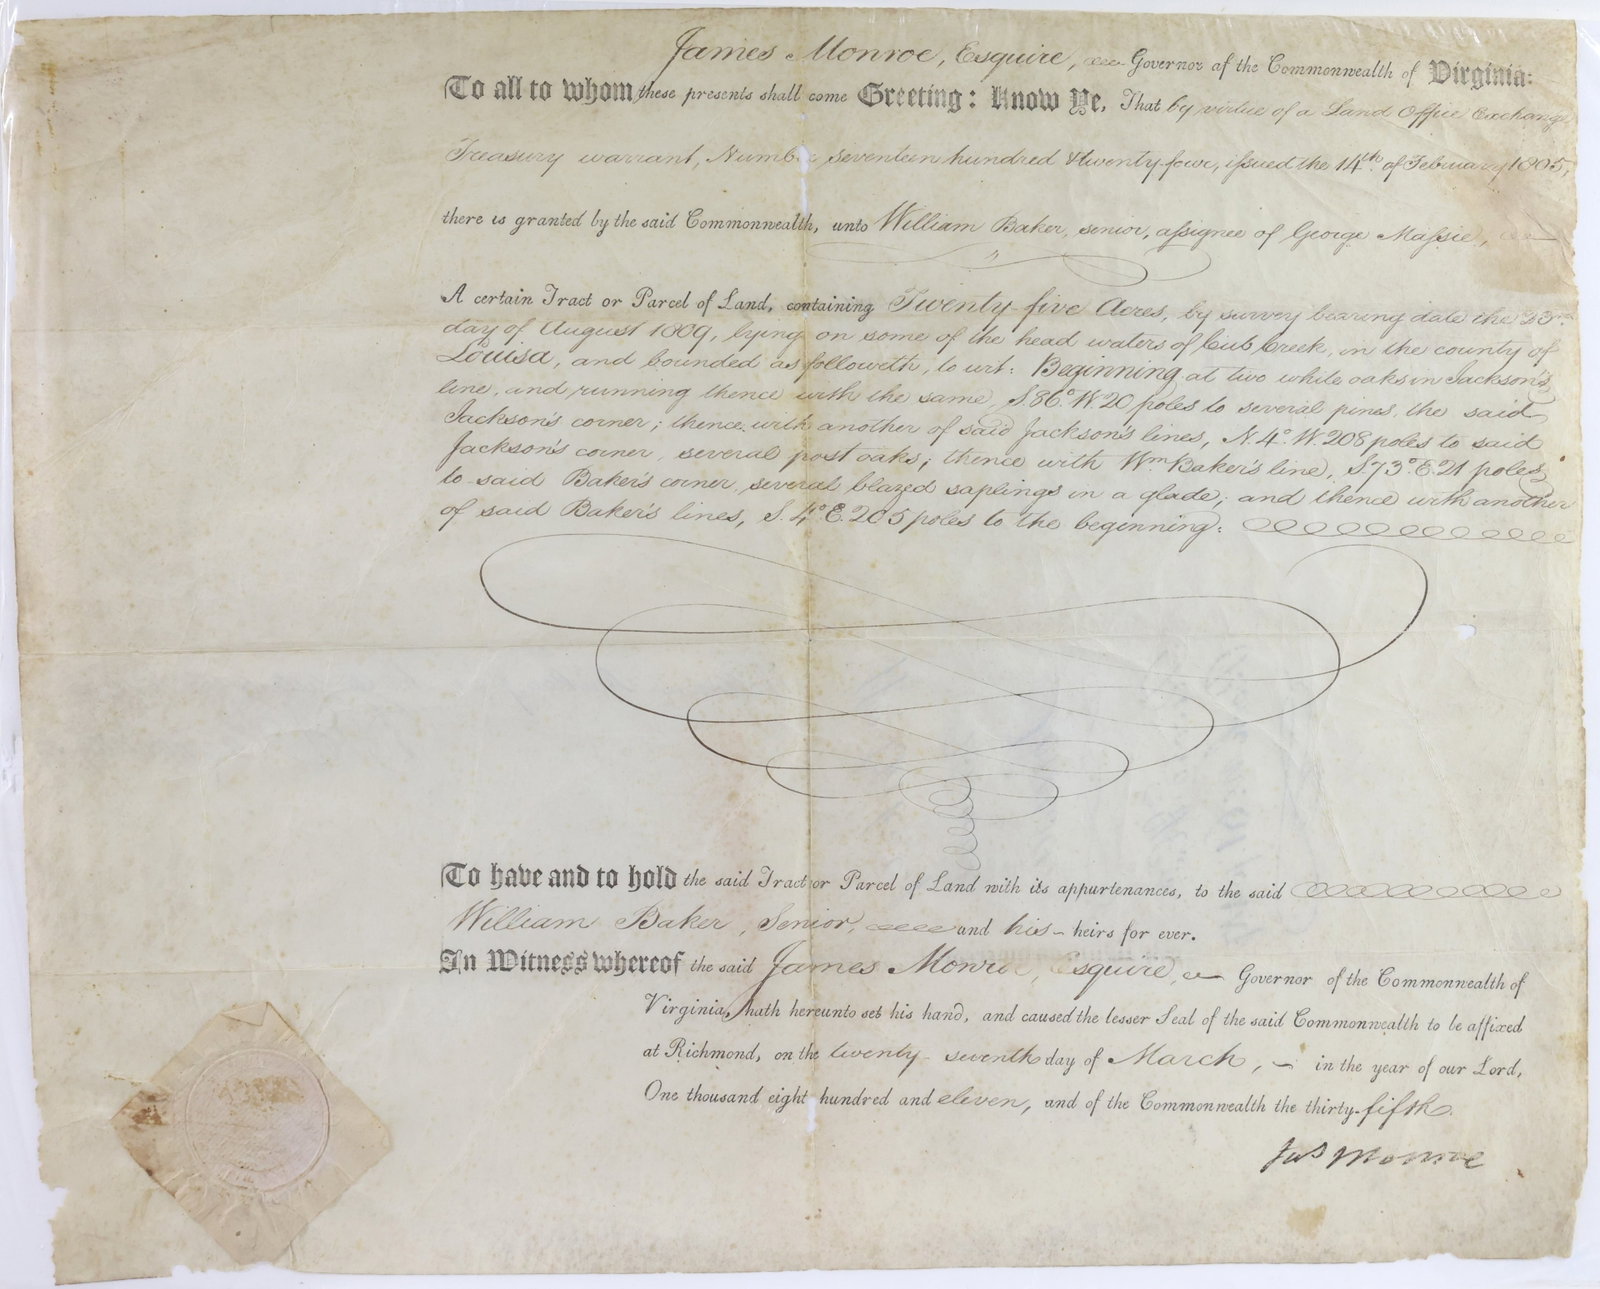 James Monroe, Esquire, Governor of the Commonwealth of Virginia:
To all to whom these presents shall come Greeting: Know Ye, That by virtue of a Land Office Exchange
Treasury warrant, Number seventeen hundred & twenty four, issued the 14th of February 1805,
there is granted by the said Commonwealth, unto William Baker, senior, assignee of George Massie,
A certain Tract or Parcel of Land, containing Twenty-five Acres, by survey bearing date the
day of August 1809, lying on some of the head waters of Cub Creek, in the county of
Louisa, and bounded as followeth, to wit: Beginning at two white oaks in Jackson's
line, and running thence with the same, S. 86° W. 20 poles to several pines, the said
Jackson's corner; thence with another of said Jackson's lines, N. 4° W. 208 poles to said
Jackson's corner, several post oaks; thence with Wm Baker's line, S. 73° E. 21 poles
to said Baker's corner, several blazed saplings in a glade; and thence with another
of said Baker's lines, S. 4° E. 205 poles to the beginning:
To have and to hold the said Tract or Parcel of Land with its appurtenances, to the said
William Baker, Senior, and his heirs for ever.
In Witness whereof the said James Monroe, Esquire, Governor of the Commonwealth of
Virginia, hath hereunto set his hand, and caused the lesser Seal of the said Commonwealth to be affixed
at Richmond, on the twenty-seventh day of March, in the year of our Lord,
One thousand eight hundred and eleven, and of the Commonwealth the thirty-fifth.
Jas Monroe